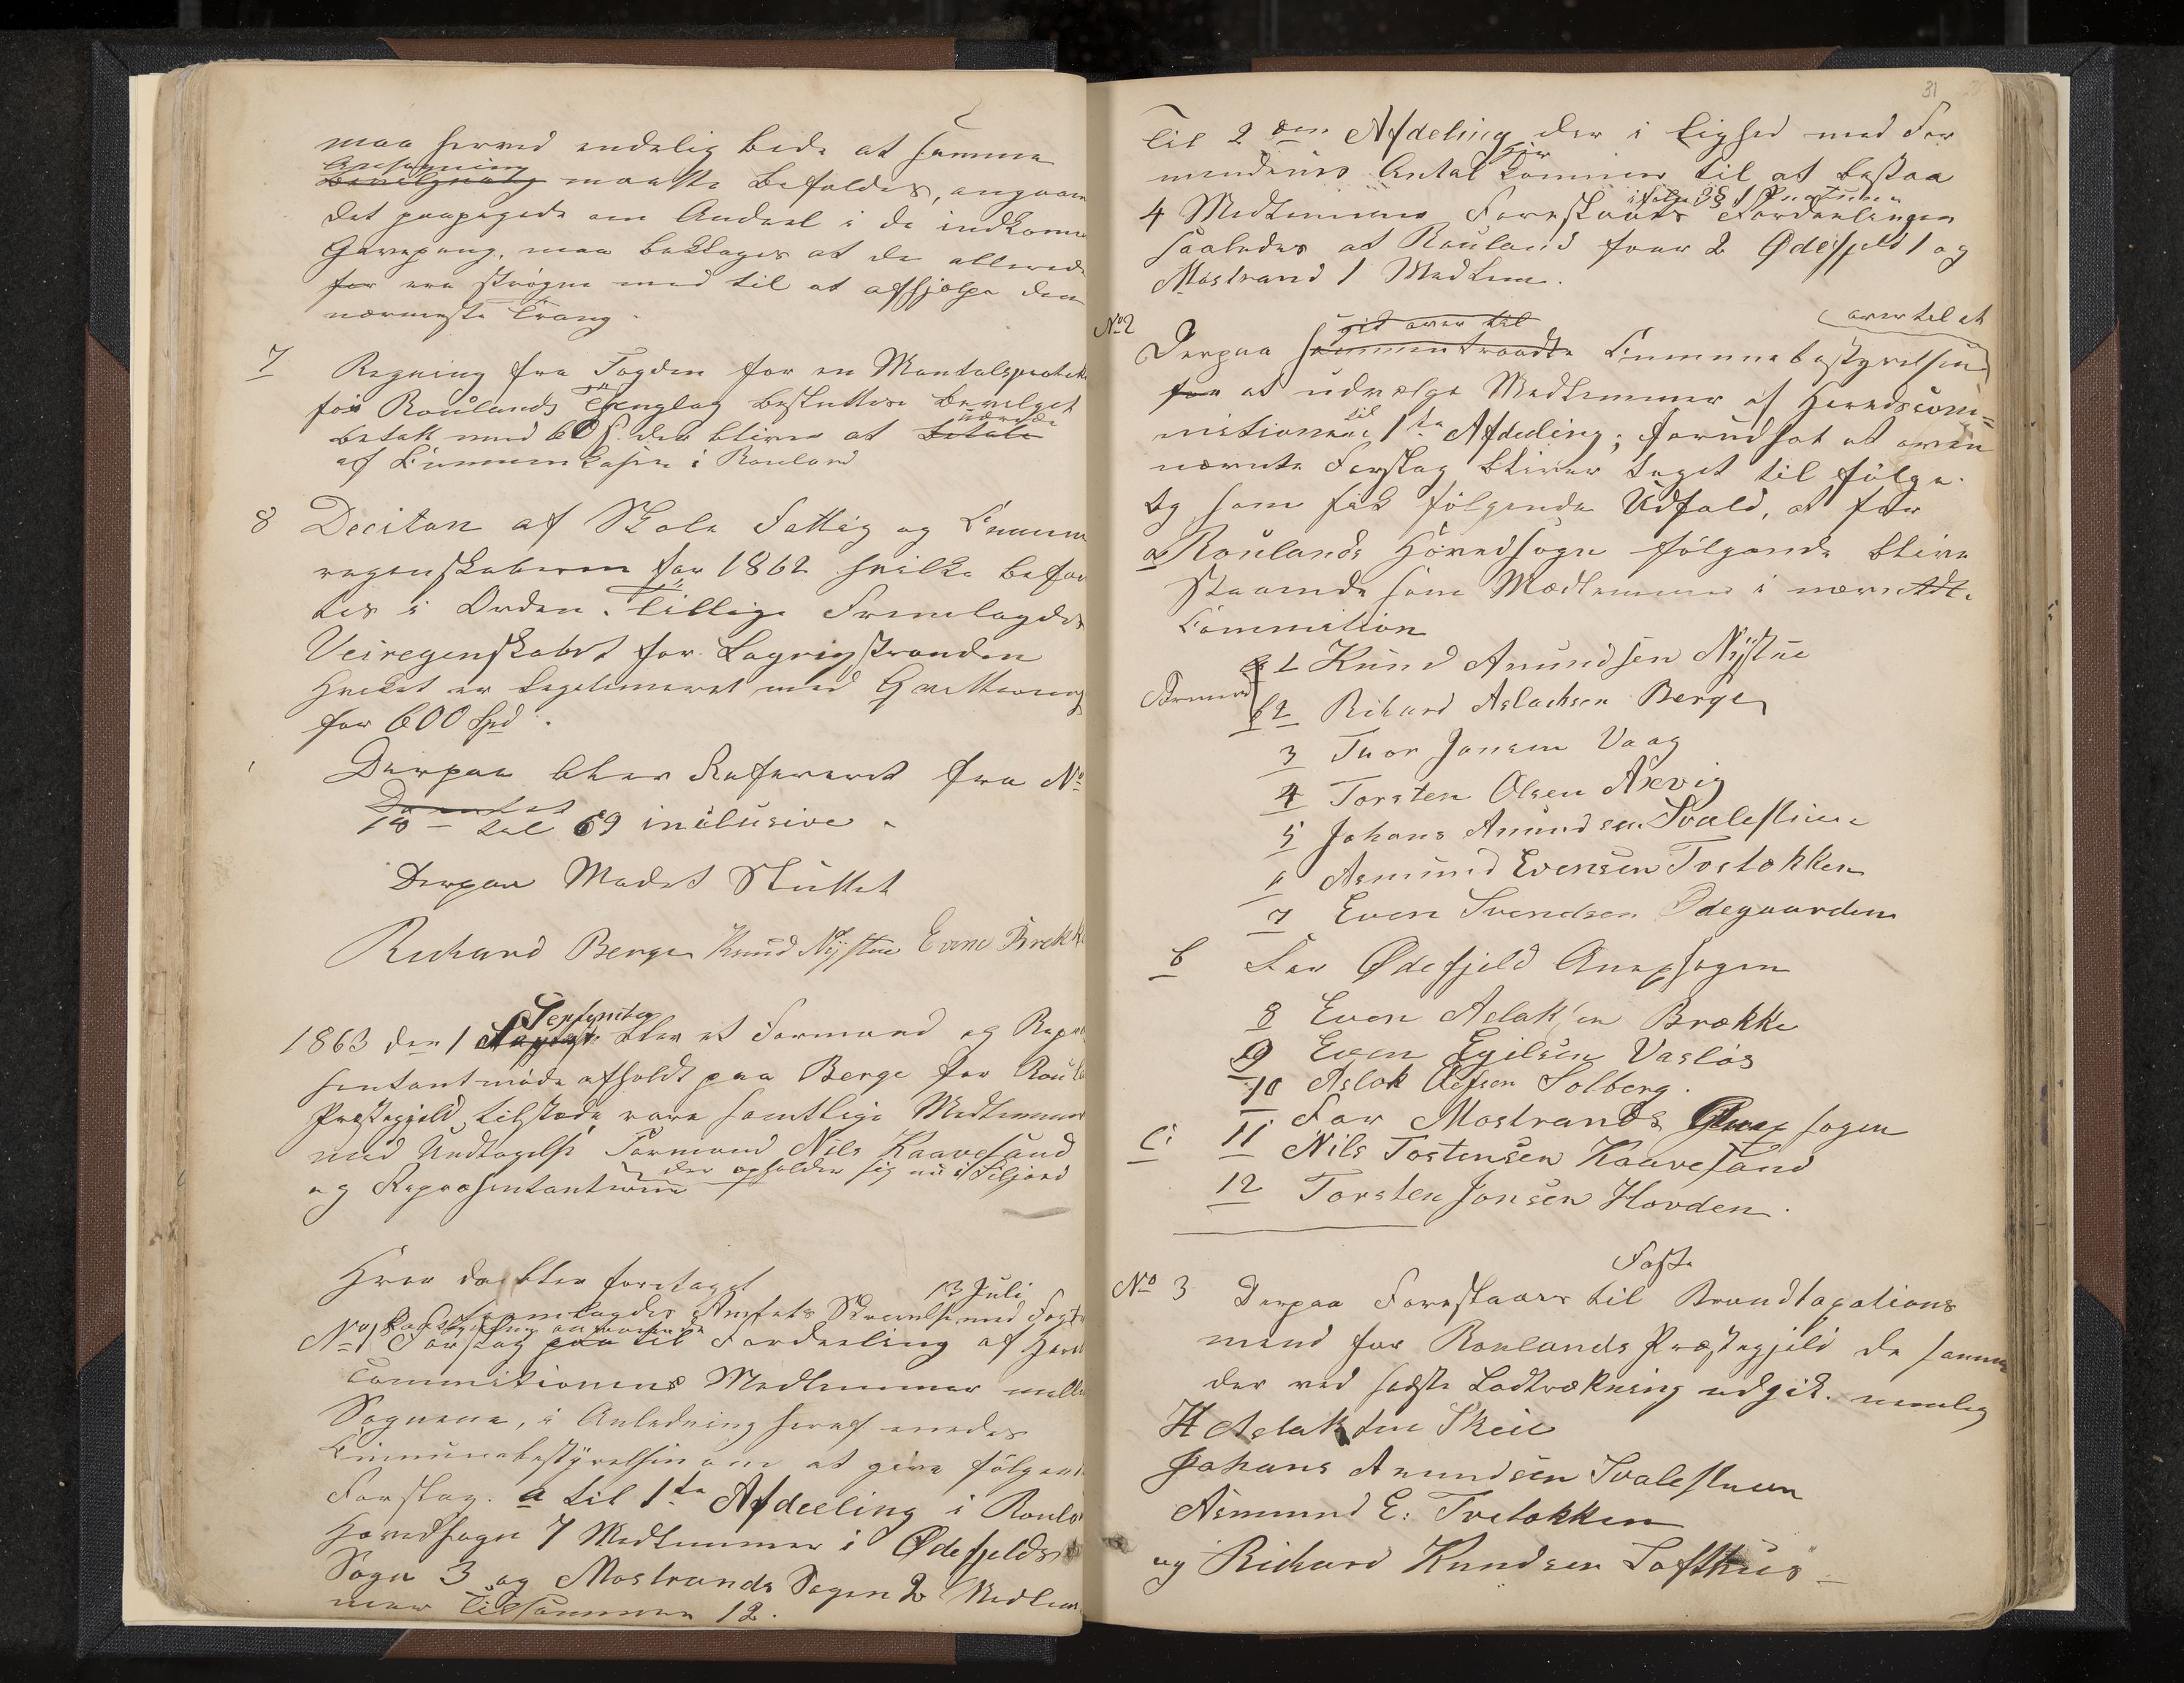 maa herved endelig bede at samme
Anføring
Bevilgning maatte befaldes, angaaen
det paapegede om Andeel i de indkomne
Gavepeng, maa beklages at de allerede
for ere strøgne med til at afhjelpe den
nærmeste Trang.
7 Regning fra Fogden for en Mantalsprotok
for Raulands Thinglag besluttes bevilget
betalt med 60 s. der bliver at betale
af Communekassen i Rauland
8 Deciton af Skole Fattig og Commune
regenskaberne for 1862 hvilke befan
tes i Orden. Tillige fremlagdes
Veiregenskabet for Lognvigstranden
Hvilket er legetimeret med Qvittering
for 600 Spd.
Derpaa blev Refereret fra No
18 – til 69 inclusive.
Derpaa Mødet Sluttet
Richard Berge Knud Nystue Evene Brekke
September
1863 den 1 August blev et Formand og Repræ
sentantmøde afholdt paa Berge for Raula
Præstegjeld, tilstede vare samtlige Medlemmer
med Undtagelse Formand Nils Kaavesand
der opholder sig nu i Siljord
og Repræsentanterne
Hvor da blev foretaget
13 Juli
fremlagdes Amtets Skrivelse med Fogd
No 1 Paategning angaaende
Forslag paa til Fordeeling af Hered
Commitionens Medlemmer mellem
Sognene, i Anledning heraf enedes
Communebestyrelsen om at give følgende
Forslag. a til 1te Afdeeling i Raula
Hovedsogn 7 Medlemmer i Ødefjelds
Sogn 3 og Mostrands Sogn 2 Medlem
mer Tilsammen 12.
31
til 2den Afdeling der i Lighed med For
mendenes Antal kommer til at bestaa
her
4 Medlemmer Foreslaaes Fordeelingen
saaledes at Rauland faar 2 Ødefjeld 1 og
Mostrand 1 Medlem.
No 2
gik over til over til at
Derpaa sammentraadte Communebestyrelsen
for at udvælge Medlemmer af Heredscom=
mitionen til 1te Afdeeling; forudsat at oven
nævnte Forslag bliver taget til følge.
Og som fik følgende Udfald, at for
a Raulands Hovedsogn følgende bliver
staaende som Medlemmer i nævnte
Commition
1 Knud Anundsen Nystue
Formend
2 Rikard Aslachsen Berge
3 Tuor Jonsen Vaag
4 Torsten Olsen Axvig
5 Johans Anundsen Svalestuen
6 Asmund Evensen Tvetokken
7 Even Svendsen Ødegaarden
b For Ødefjeld Anexsogn
8 Even Aslaksen Brække
9 Even Egilsen Vaslös
10 Aslak Olefsen Solberg.
c: For Mostrands Anex sogn
11 Nils Tostensen Kaavesand
12 Torsten Jonsen Hovden.
Faste
No 3 Derpaa Foreslaaes til Brandtaxations
mend for Raulands Præstegjeld de samme
der ved sidste Lodtrækning udgik. nemlig
H Aslaksen Skeie
Johans Anundsen Svalestuen
Asmund E: Tvetokken
og Richard Knudsen Lofthus –